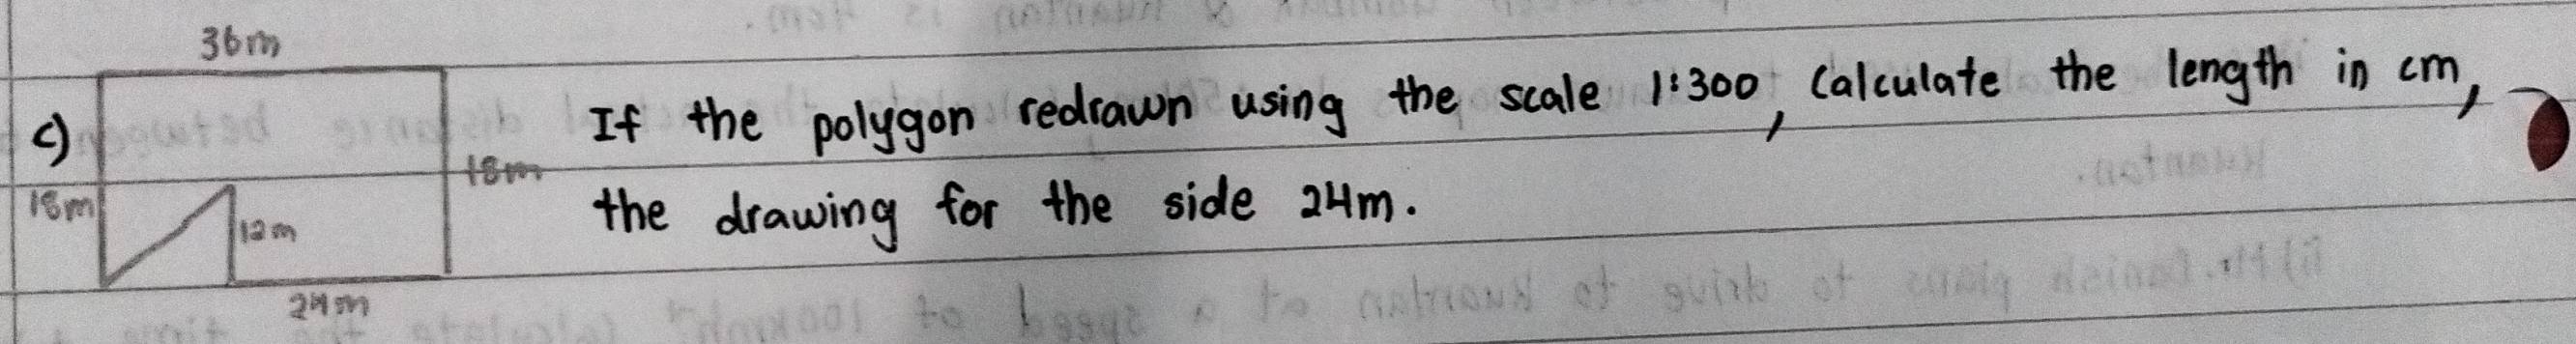 36m
c) If the polygon redrawn using the scale 1:300, Calculate the length in cm,
18m
18m the drawing for the side 24m.
12m
24m